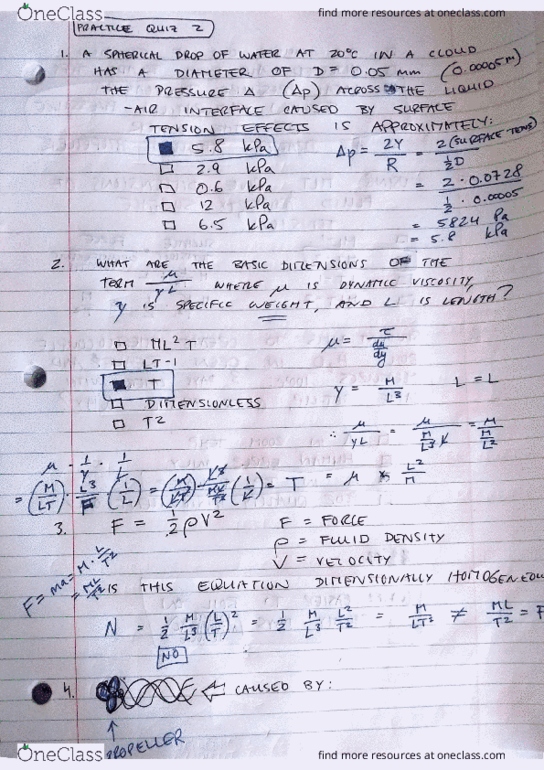 OneClass
find more resources at oneclass.com
PRACTICE QUIZ 2
1. A SPHERICAL DROP OF WATER AT 20°C IN A CLOUD
HAS A DIAMETER OF D = 0.05 mm (0.00005m)
THE PRESSURE Δ (Δp) ACROSS THE LIQUID
-AIR INTERFACE CAUSED BY SURFACE
TENSION EFFECTS IS APPROXIMATELY:
5.8 kPa
2.9 kPa
0.6 kPa
12 kPa
6.5 kPa
Δp = 2Y/R = 2(SURFACE TENS)/½D
= 2 · 0.0728 / ½ · 0.00005
= 5824 Pa
= 5.8 kPa
2. WHAT ARE THE BASIC DIMENSIONS OF THE
TERM μ/γL WHERE μ IS DYNAMIC VISCOSITY,
γ IS SPECIFIC WEIGHT, AND L IS LENGTH?
ML²T
LT-1
T
DIMENSIONLESS
T2
μ = τ / du/dy
γ = M/L³ L = L
∴ μ/γL = μ / M/L³ L = μ / M/L²
= μ × L²/M
μ · 1/γ · 1/L
= (M/LT) · L³/F · (1/L) = = T
3. F = ½ρV²
F = FORCE
ρ = FLUID DENSITY
V = VELOCITY
F = ma = M · L/T²
= ML/T²
IS THIS EQUATION DIMENSIONALLY HOMOGENEOU
N = ½ M/L³ (L/T)² = ½ M/L³ L²/T² = M/LT² ≠ ML/T² = F
NO
4. ⇐ CAUSED BY:
PROPELLER
OneClass
find more resources at oneclass.com